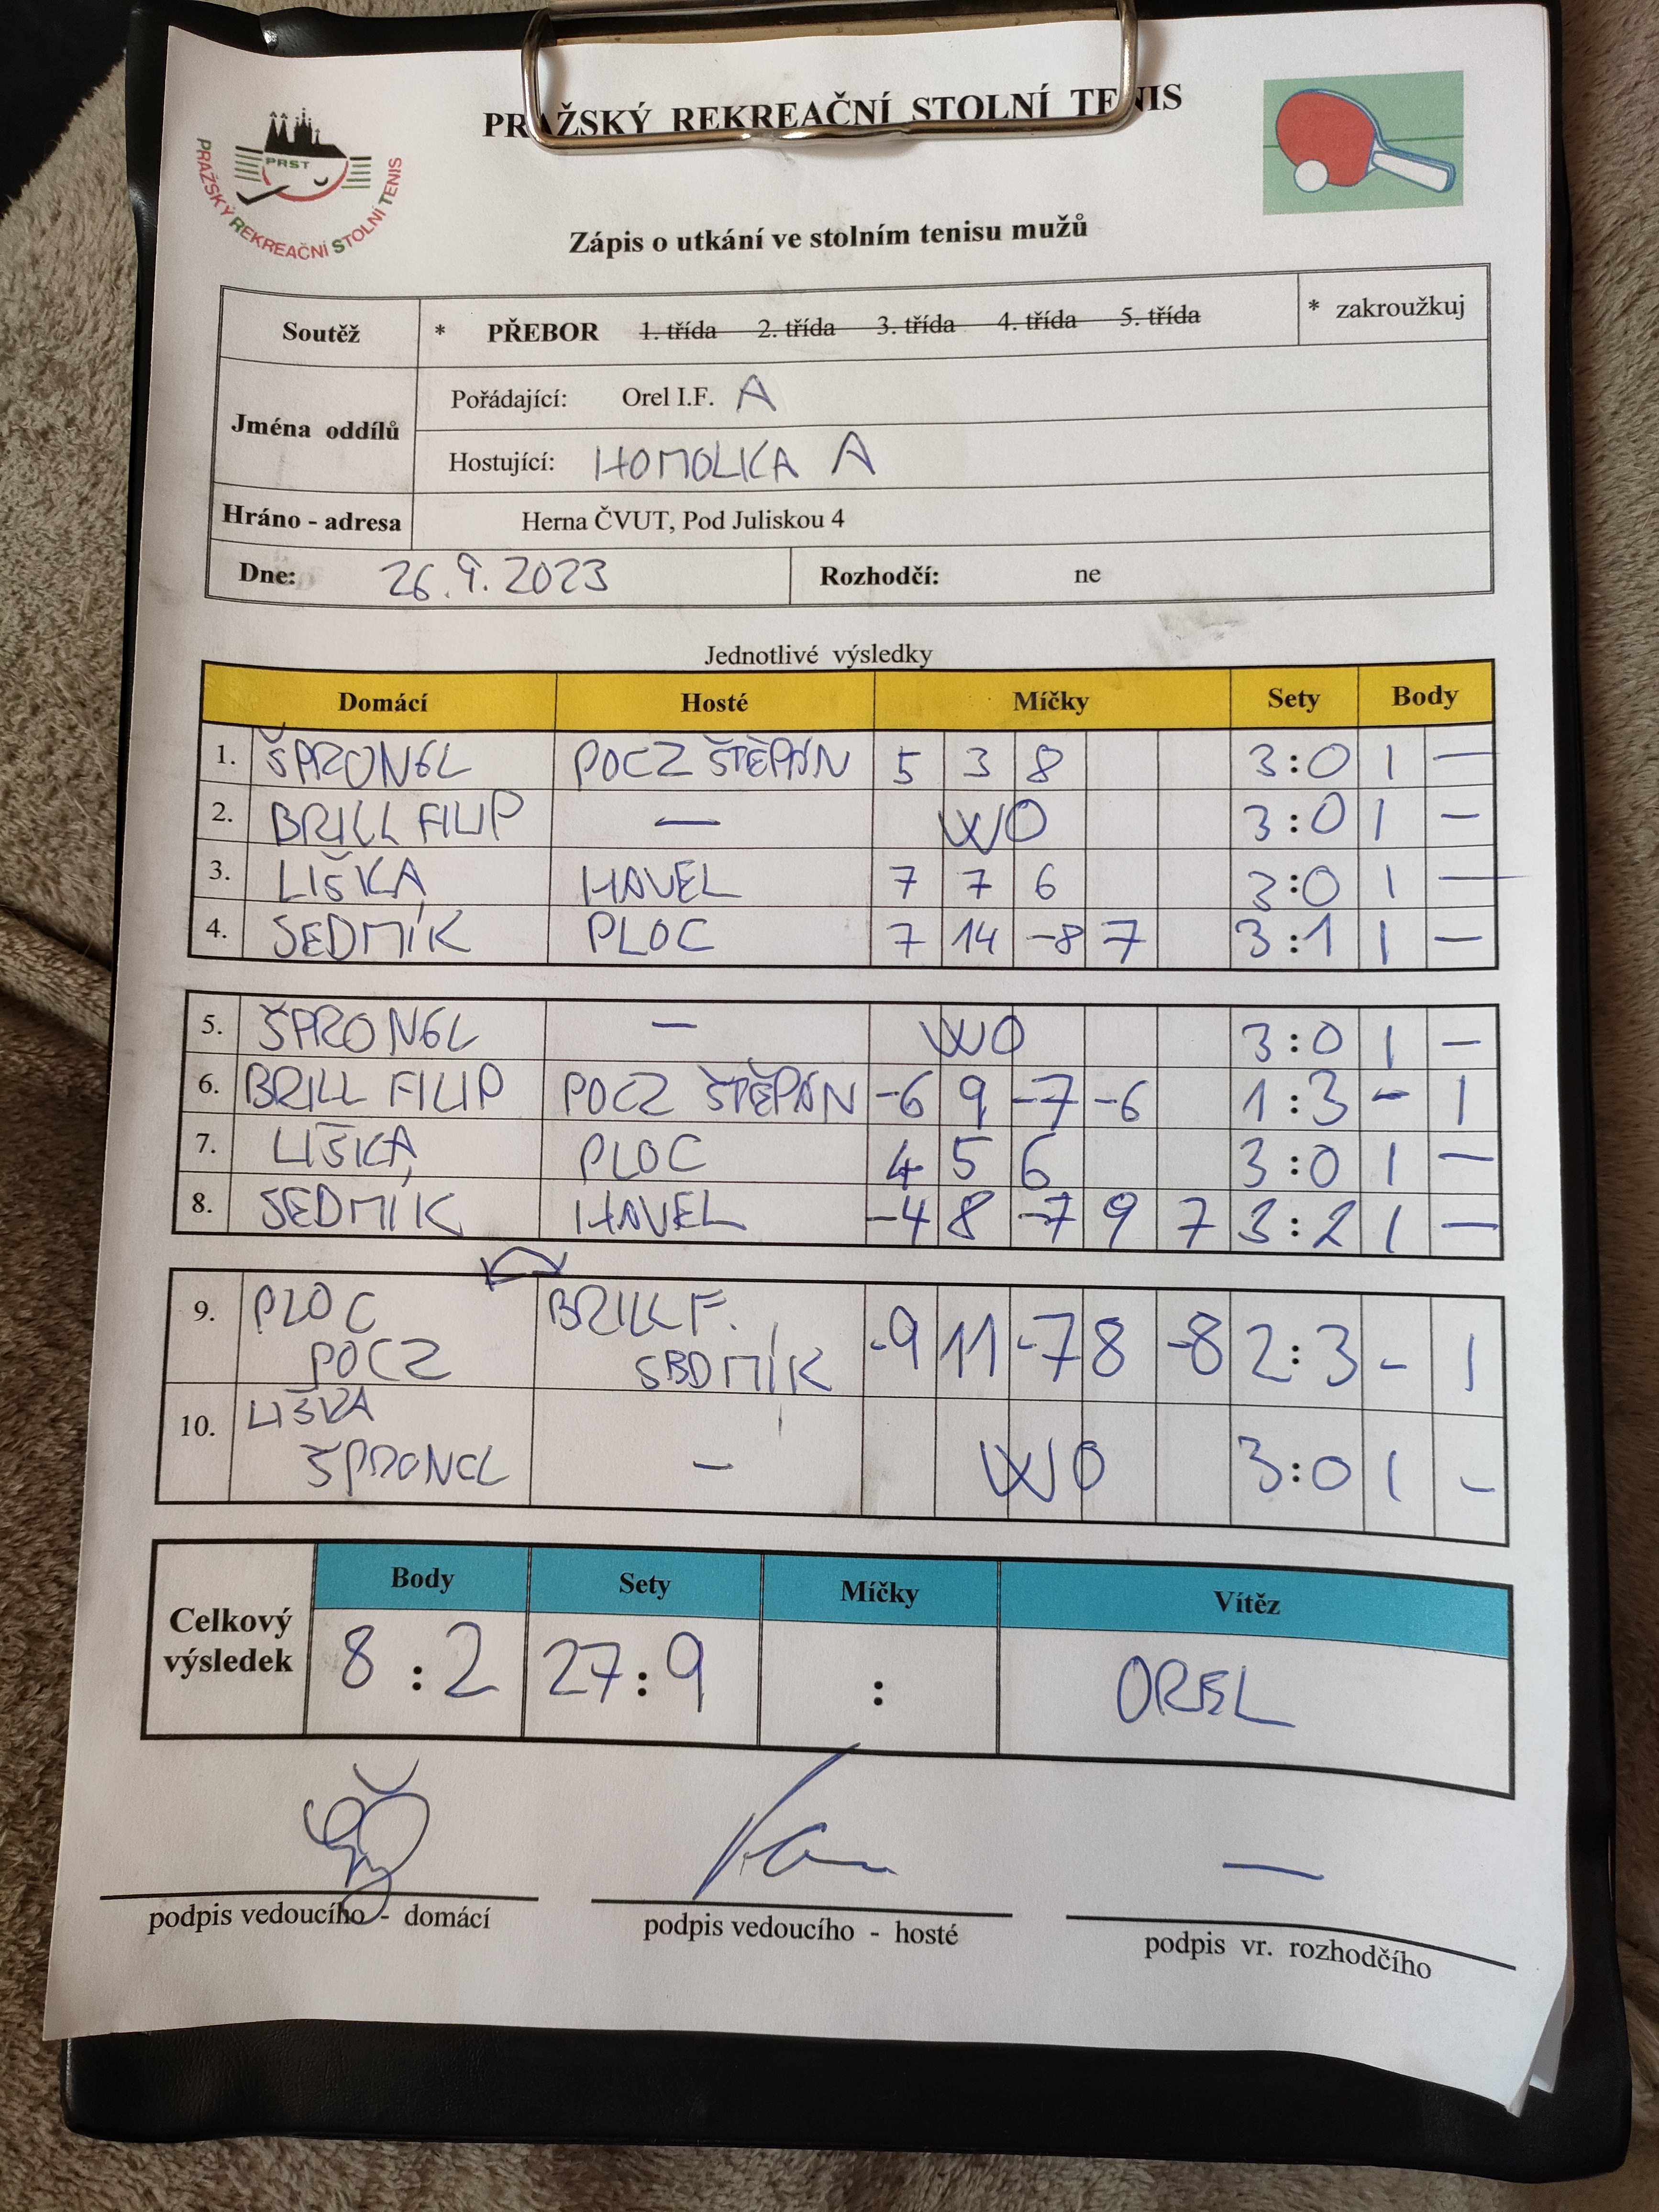 PRAŽSKÝ REKREAČNÍ STOLNÍ TENIS
PRST
PRAŽSKÝ REKREAČNÍ STOLNÍ TENIS
Zápis o utkání ve stolním tenisu mužů
Soutěž * PŘEBOR 1. třída 2. třída 3. třída 4. třída 5. třída * zakroužkuj
Jména oddílů
Pořádající: Orel I.F. A
Hostující: HOMOLKA A
Hráno - adresa Herna ČVUT, Pod Juliskou 4
Dne: 26.9.2023 Rozhodčí: ne
Jednotlivé výsledky
Domácí Hosté Míčky Sety Body
1. ŠPRONGL POCZ ŠTĚPÁN 5 3 8 3:0 1 —
2. BRILL FILIP — WO 3:0 1 —
3. LIŠKA HAVEL 7 7 6 3:0 1 —
4. SEDMÍK PLOC 7 14 -8 7 3:1 1 —
5. ŠPRONGL — WO 3:0 1 —
6. BRILL FILIP POCZ ŠTĚPÁN -6 9 -7 -6 1:3 - 1
7. LIŠKA PLOC 4 5 6 3:0 1 —
8. SEDMÍK HAVEL -4 8 -7 9 7 3:2 1 —
9. PLOC BRILL F. -9 11 -7 8 -8 2:3 - 1
POCZ SEDMÍK
10. LIŠKA
ŠPRONGL — WO 3:0 1 -
Celkový výsledek
Body Sety Míčky Vítěz
8:2 27:9 : OREL
podpis vedoucího - domácí podpis vedoucího - hosté podpis vr. rozhodčího